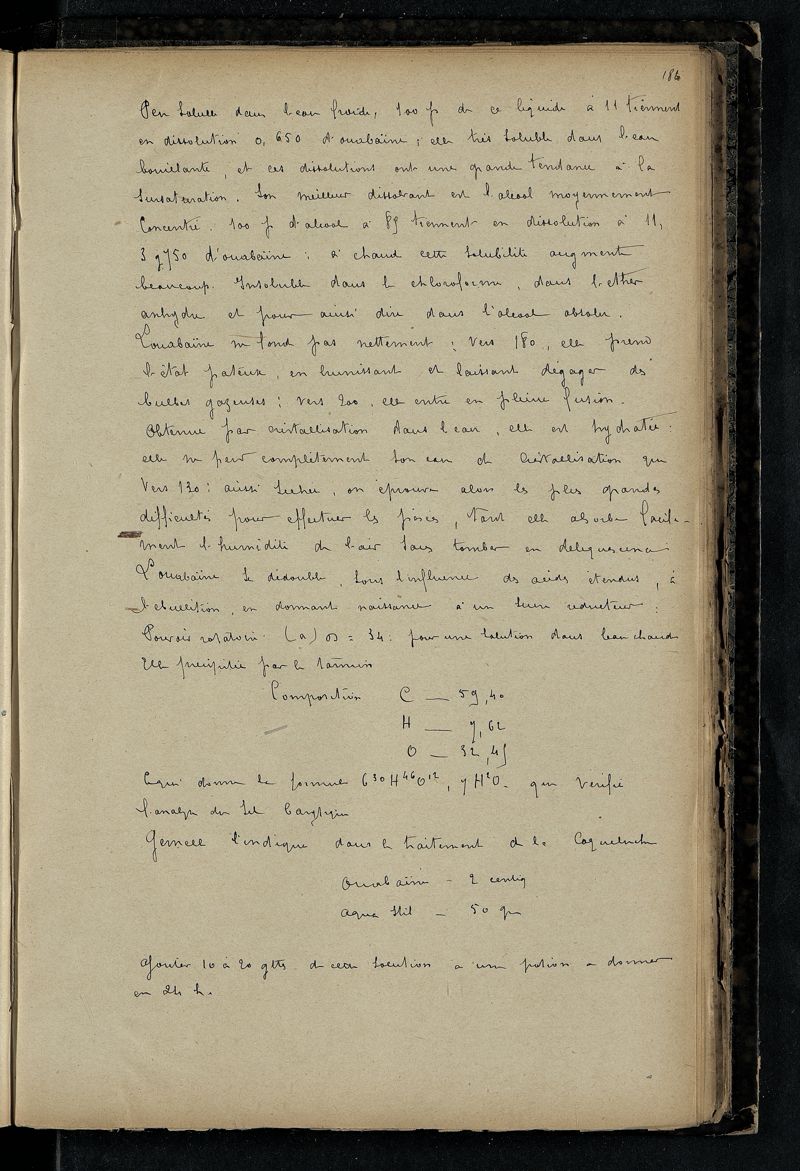 186
Peu soluble dans l'eau froide, 100 p de ce liquide à 11 tiennent
en dissolution 0,650 d'ouabaïne ; elle très soluble dans l'eau
bouillante, et ces dissolutions ont une grande tendance à la
sursaturation. Son meilleur dissolvant est l'alcool moyennement
concentré. 100 p d'alcool à 85 tiennent en dissolution à 11,
3 g750 d'ouabaïne : à chaud cette solubilité augmente
beaucoup. Insoluble dans le chloroforme, dans l'éther
anhydre et pour ainsi dire dans l'alcool absolu.
L'ouabaïne ne fond pas nettement : vers 180, elle prend
l'état pateux, en brunissant et laissant dégager des
bulles gazeuses : vers 200, elle entre en pleine fusion.
Obtenue par cristallisation dans l'eau, elle est hydratée :
elle ne perd complètement son eau de cristallisation que
vers 130 : aussi séchée, on éprouve alors les plus grandes
difficultés pour effectuer les pesées, tant elle absorbe facile-
ment l'humidité de l'air sans tomber en deliquescence
L'ouabaïne se dédouble, sous l'influence des acides étendus, à
l'ébullition, en donnant naissance à un sucre réducteur :
Pouvoir rotatoire (a) D = 34 : pour une solution dans l'eau chaude
Elle précipitée par le tannin
Composition C — 59,40
H — 7,62
O — 32,45
Ce qui donne la formule C30H46O12, 7 H2O. que vérifie
l'analyse du sel
Gemell l'indique dans le traitement de la Coqueluche
Ouabaïne - 2 centig
Aqua stil - 50 gr
Ajouter 10 à 20 gtts de cette solution à une potion à donner
en 24 h.